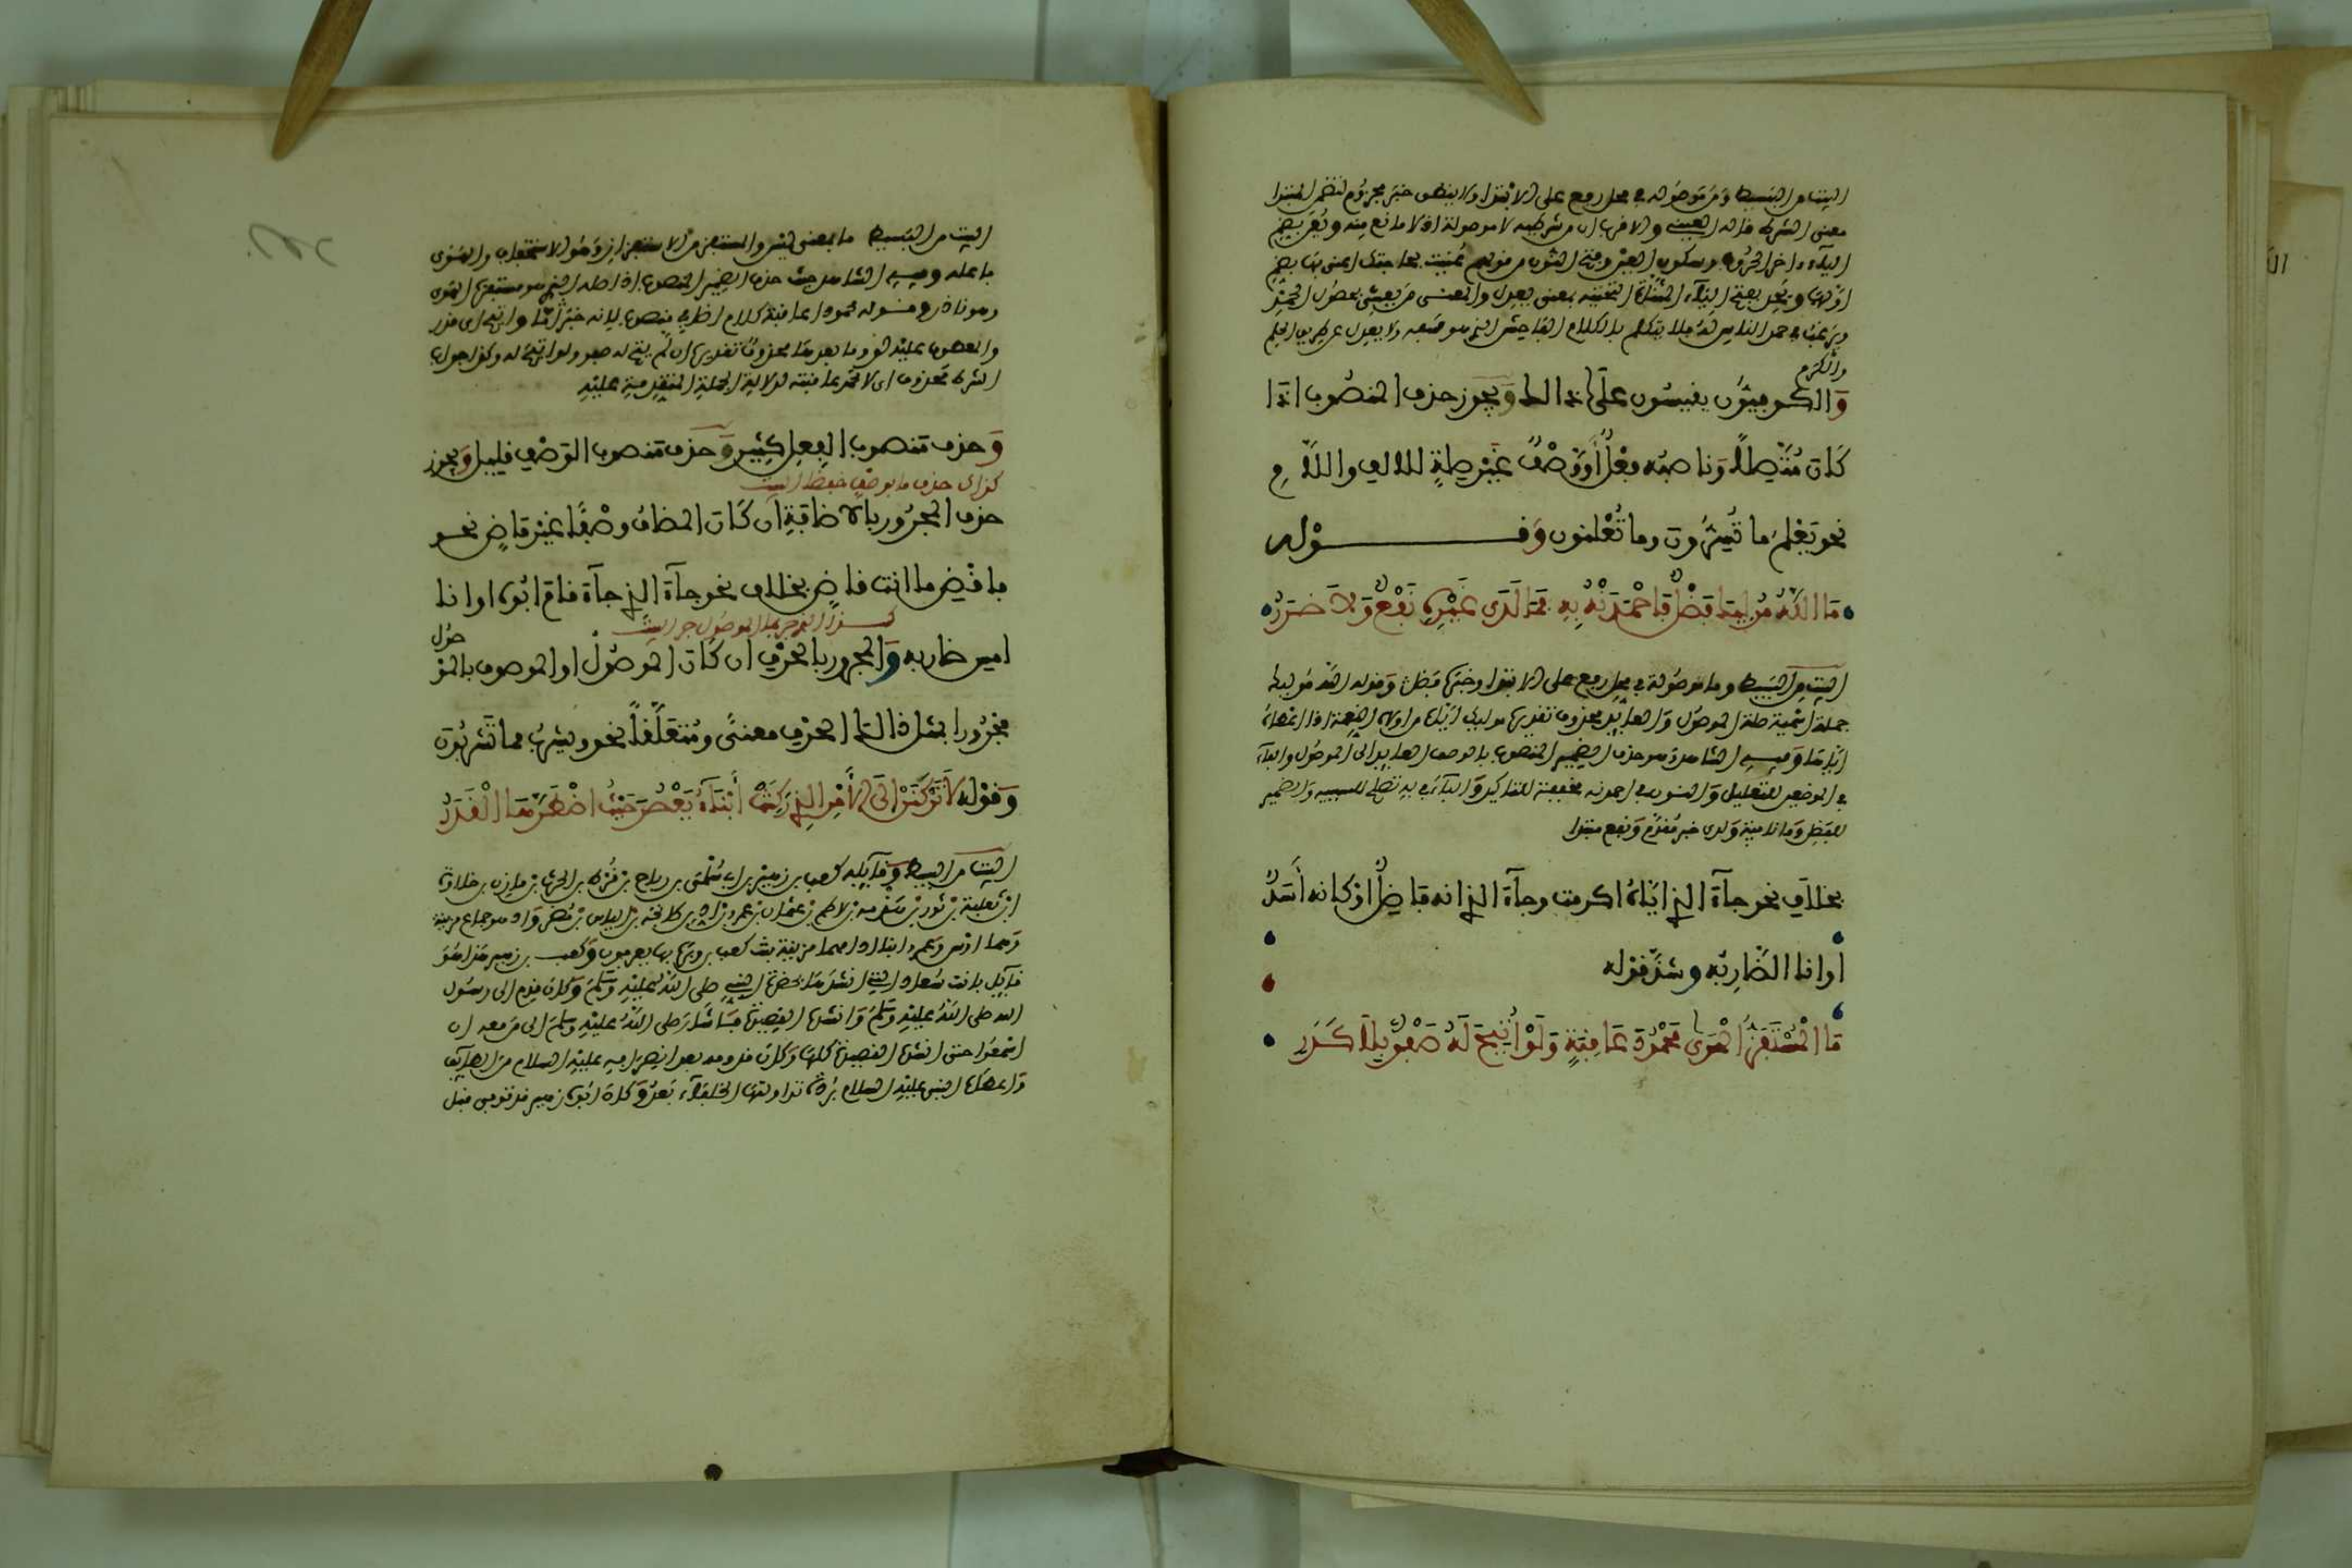 البيت من البسيط ومن موصولة في محل رفع على الابتداء ولا ينطق خبر مجزوم لتضمن المبتدا
معنى الشرط قاله العيني والاقرب ان من شرطية لا موصولة اذ لا مانع منه ويُعْنَ بضم
الياء اخر الحروف وسكون العين وفتح النون من قولهم عُنيت بحاجتك اعنى بها بضم
اولها ويَحِد بفتح الياء المثناة التحتية بمعنى يعدل والمعنى من يعتني بحصول الحمد
ويرغب في حمد الناس له فلا يتكلم بالكلام الفاحش الذي هو سفه ولا يعدل عن طريق الحلم
والكرم
وَالكوفيّون يقيسُون على ذالك وَيجوز حذف المنصُوب اذَا
كَان مُتّصِلاً وَناصبُه فعْلٌ أَوْ وَصْفٌ غَيْر صلةٍ للالف واللاَّمِ
نحو يَعْلمُ ما تُسِرُّونَ وما تُعْلنون وَقــــوْله
مَا اللّهُ مُولِيكَ فَضْلٌ فَاحْمَدَنْهُ بِهِ فمَا لَدَى غَيْرِهِ نَفْعٌ وَلاَ ضَرَرُ
البيت من البسيط وما موصُولة في محل رفع على الابتدا وخبرها فضل وَقوله الله مُوليك
جملة اسمية صلة الموصُول وَالعائد محذوف تقديره موليكه اي من اولاه النعمة اذا اعطاهُ
اياها وَفيه الشاهد وهو حذف الضمير المنصوب بالوصف العائد الى الموصُول والفاء
في الموضعين للتعليل وَالنون في احمدنه خفيفة للتاكيد وَالباء في به تصلح للسببية وَالضمير
للفضل وَما نافية وَلدى خبر مُقدم وَنفع مبتدا
بخلاَف نحو جآءَ الذي ايّاهُ اكرمت وجآءَ الذي انه فاضِلٌ او كانه أَسَدٌ
اَوانا الضّاربُه وشذّ قوله
مَا الْمُسْتَفِزُّ الْهَوَى مَحْمُودَ عَاقِبَةٍ وَلَوْ أُتِيحَ لَهُ صَفْوٌ بِلاَ كَدَرِ
البيت من البسيط ما بمعنى ليس والمستفز من الاستفزاز وَهُو الاستخفاف والهوى
فاعله وفيه الشاهد حيث حذف الضمير المنصوب اذ اصله الذي هو مستفزه الهوى
وهو ناذر وقوله محمود عاقبة كلام اضافي منصوب لانه خبر ما واتيح اي قدر
والمعطوف عليه لو وما بعدها محذوف تقديره ان لم يتح له صفو ولو اتيح له وكذا جواب
الشرط محذوف اي لا تحمد عاقبته لدلالة الجملة المتقدمة عليه
وَحذف منصوب الفِعل كثِير وَحذف منصوب الوَصْف قليل وَيجوز
كذاك حذف ما بوصف خفضا البيت
حذف المجرُور بالاضافةِ ان كَان المضاف وصْفًا غيْر مَاضٍ نحو
فاقْضِ ما انت قاضٍ بخلاف نحو جآءَ الذي جآءَ قام ابُوه او انا
كــذا الذي جر بما الموصُول جر البيت
امسِ ضاربه وَالمجرور بالحرْف ان كَان الموصُول او الموصوف بالمو
صُول
مَجْرُورا بمثل ذالك الحرْف معنىً ومُتَعَلَّقاً نحو ويشربُ مما تَشربُونَ
وَقوْلِه لاَ تَرْكَنَنَّ اِلَى الأَمْرِ الذِي رَكِنَتْ أَبْنَآءُ يَعْصُرَ حَيْثُ اضْطَرَّهَا الْقَدَرُ
البيت من البسيط وَقآئِله كعب بن زهير بن ابي سُلْمَى بن رباح بن قُرط بن الحرث بن مازن بن خلاوة
ابن ثعلبة بن ثور بن هذمة بن لاطم بن عثمان بن عمرو بن اد بن طابخة بن الياس بن مُضر وَاد هو جماع مزينة
وَهما اوس وَعمرو ابنا اد امهما مزينة بنت كعب بن وبرة بها يعرفون وَكعب بن زهير هذا هُوَ
قآئل بانت سُعاد التي انشدها بحضرة النبي صلى الله عليه وسلم وَكان قدم الى رسُول
الله صلى الله عليه وسلم وَانشده القصيدة فاشار صلى الله عليه وسلم الى من معه ان
اسْمعُوا حتى انشده القصيدة كلها وَكان قدومه بعد انصرافه عليه السلام من الطآئف
وَاعطاه النبي عليه السلام بُردة تداولتها الخلفآء بَعدُ وَكان ابُوه زهير قد توفي قبل